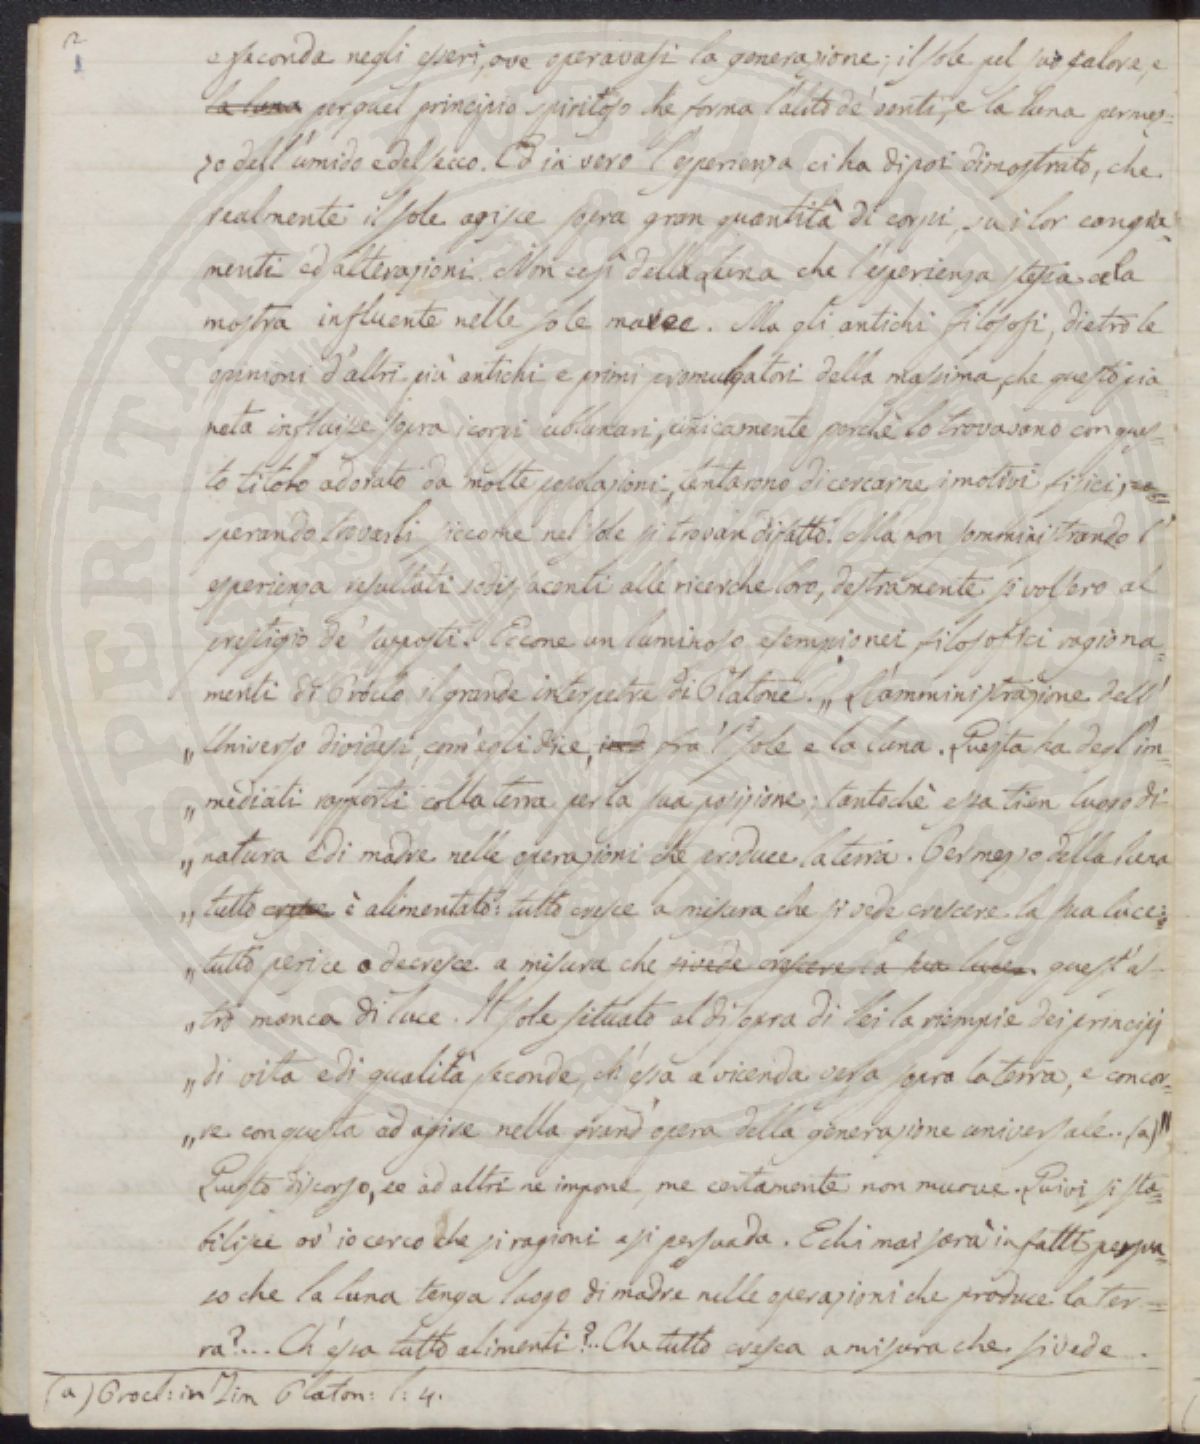 2
1
e feconda negli esseri, ove operavasi la generazione; il sole pel suo calore, e
la luna per quel principio spiritoso che forma l'alito de' venti, e la luna per mez=
zo dell'umido e del secco. Ed in vero l'esperienza ci ha dipoi dimostrato, che
realmente il sole agisce sopra gran quantità di corpi, su i lor cangia=
menti ed alterazioni. Non così della luna che l'esperienza stessa ce la
mostra influente nelle sole maree. Ma gli antichi filosofi, dietro le
opinioni d'altri più antichi e primi promulgatori della massima, che questo pia=
neta influisce sopra i corpi sublunari, unicamente perchè lo trovavano con ques=
to titolo adorato da molte popolazioni, tentarono di cercarne i motivi fisici,
sperando trovarli siccome nel sole si trovan difatto. Ma non somministrando l'
esperienza resultati sodisfacenti alle ricerche loro, destramente si volsero al
prestigio de' supposti. Eccone un luminoso esempio nei filosofici ragiona=
menti di Proclo il grande interpetre di Platone. „ L'amministrazione dell'
„ Universo dividesi, com'egli dice, fra 'l sole e la luna. Questa ha degl'im=
„ mediati rapporti colla terra per la sua posizione; tantochè essa tien luogo di
„ natura e di madre nelle operazioni che produce la terra. Per mezzo della luna
„ tutto cresce è alimentato: tutto cresce a misura che si vede crescere la sua luce:
„ tutto perisce o decresce a misura che si vede crescere la sua luce. quest'as=
„ tro manca di luce. Il sole situato al di sopra di lei la riempie dei principj
„ di vita e di qualità feconde, ch'essa a vicenda versa sopra la terra, e concor=
„ re con questa ad agire nella grand'opera della generazione universale.. (a)"
Questo discorso, se ad altri ne impone, me certamente non muove. Quivi si sta=
bilisce ov'io cerco che si ragioni e si persuada. E chi mai sarà in fatti persua=
so che la luna tenga luogo di madre nelle operazioni che produce la ter=
ra?.... Ch'essa tutto alimenti?.. Che tutto cresca a misura che si vede
(a) Procl: in Tim Platon: l: 4.